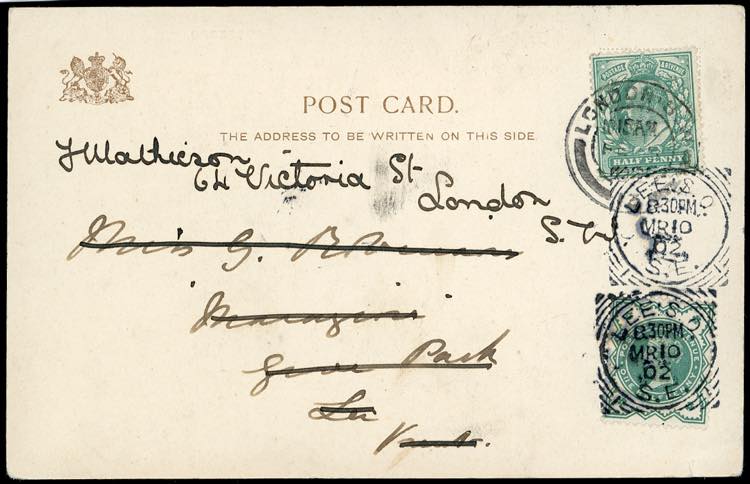 POST CARD.
THE ADDRESS TO BE WRITTEN ON THIS SIDE.
J Mathieson
64 Victoria St
London
S. W
Miss G.
Grove Park
Lee
Kent.
POSTAGE & REVENUE
HALF PENNY
LONDON
15 AM
LEE S.O
8.30PM
MR 10
02
S.E.
LEE S.O
8.30PM
MR 10
02
S.E.